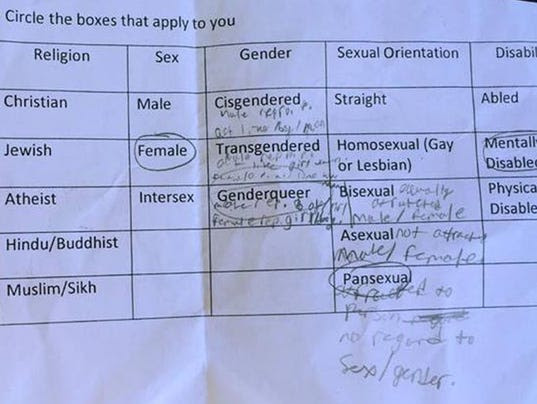 Circle the boxes that apply to you
Religion Sex Gender Sexual Orientation Disabil
Christian Male Cisgendered Straight Abled
male
act like boy/man
Jewish Female Transgendered Homosexual (Gay Mentally
or Lesbian) Disabled
Atheist Intersex Genderqueer Bisexual Physica
attracted Disable
female girl male/female
Hindu/Buddhist Asexual not attracted
male/female
Muslim/Sikh Pansexual
attracted to
person
no regard to
sex/gender.